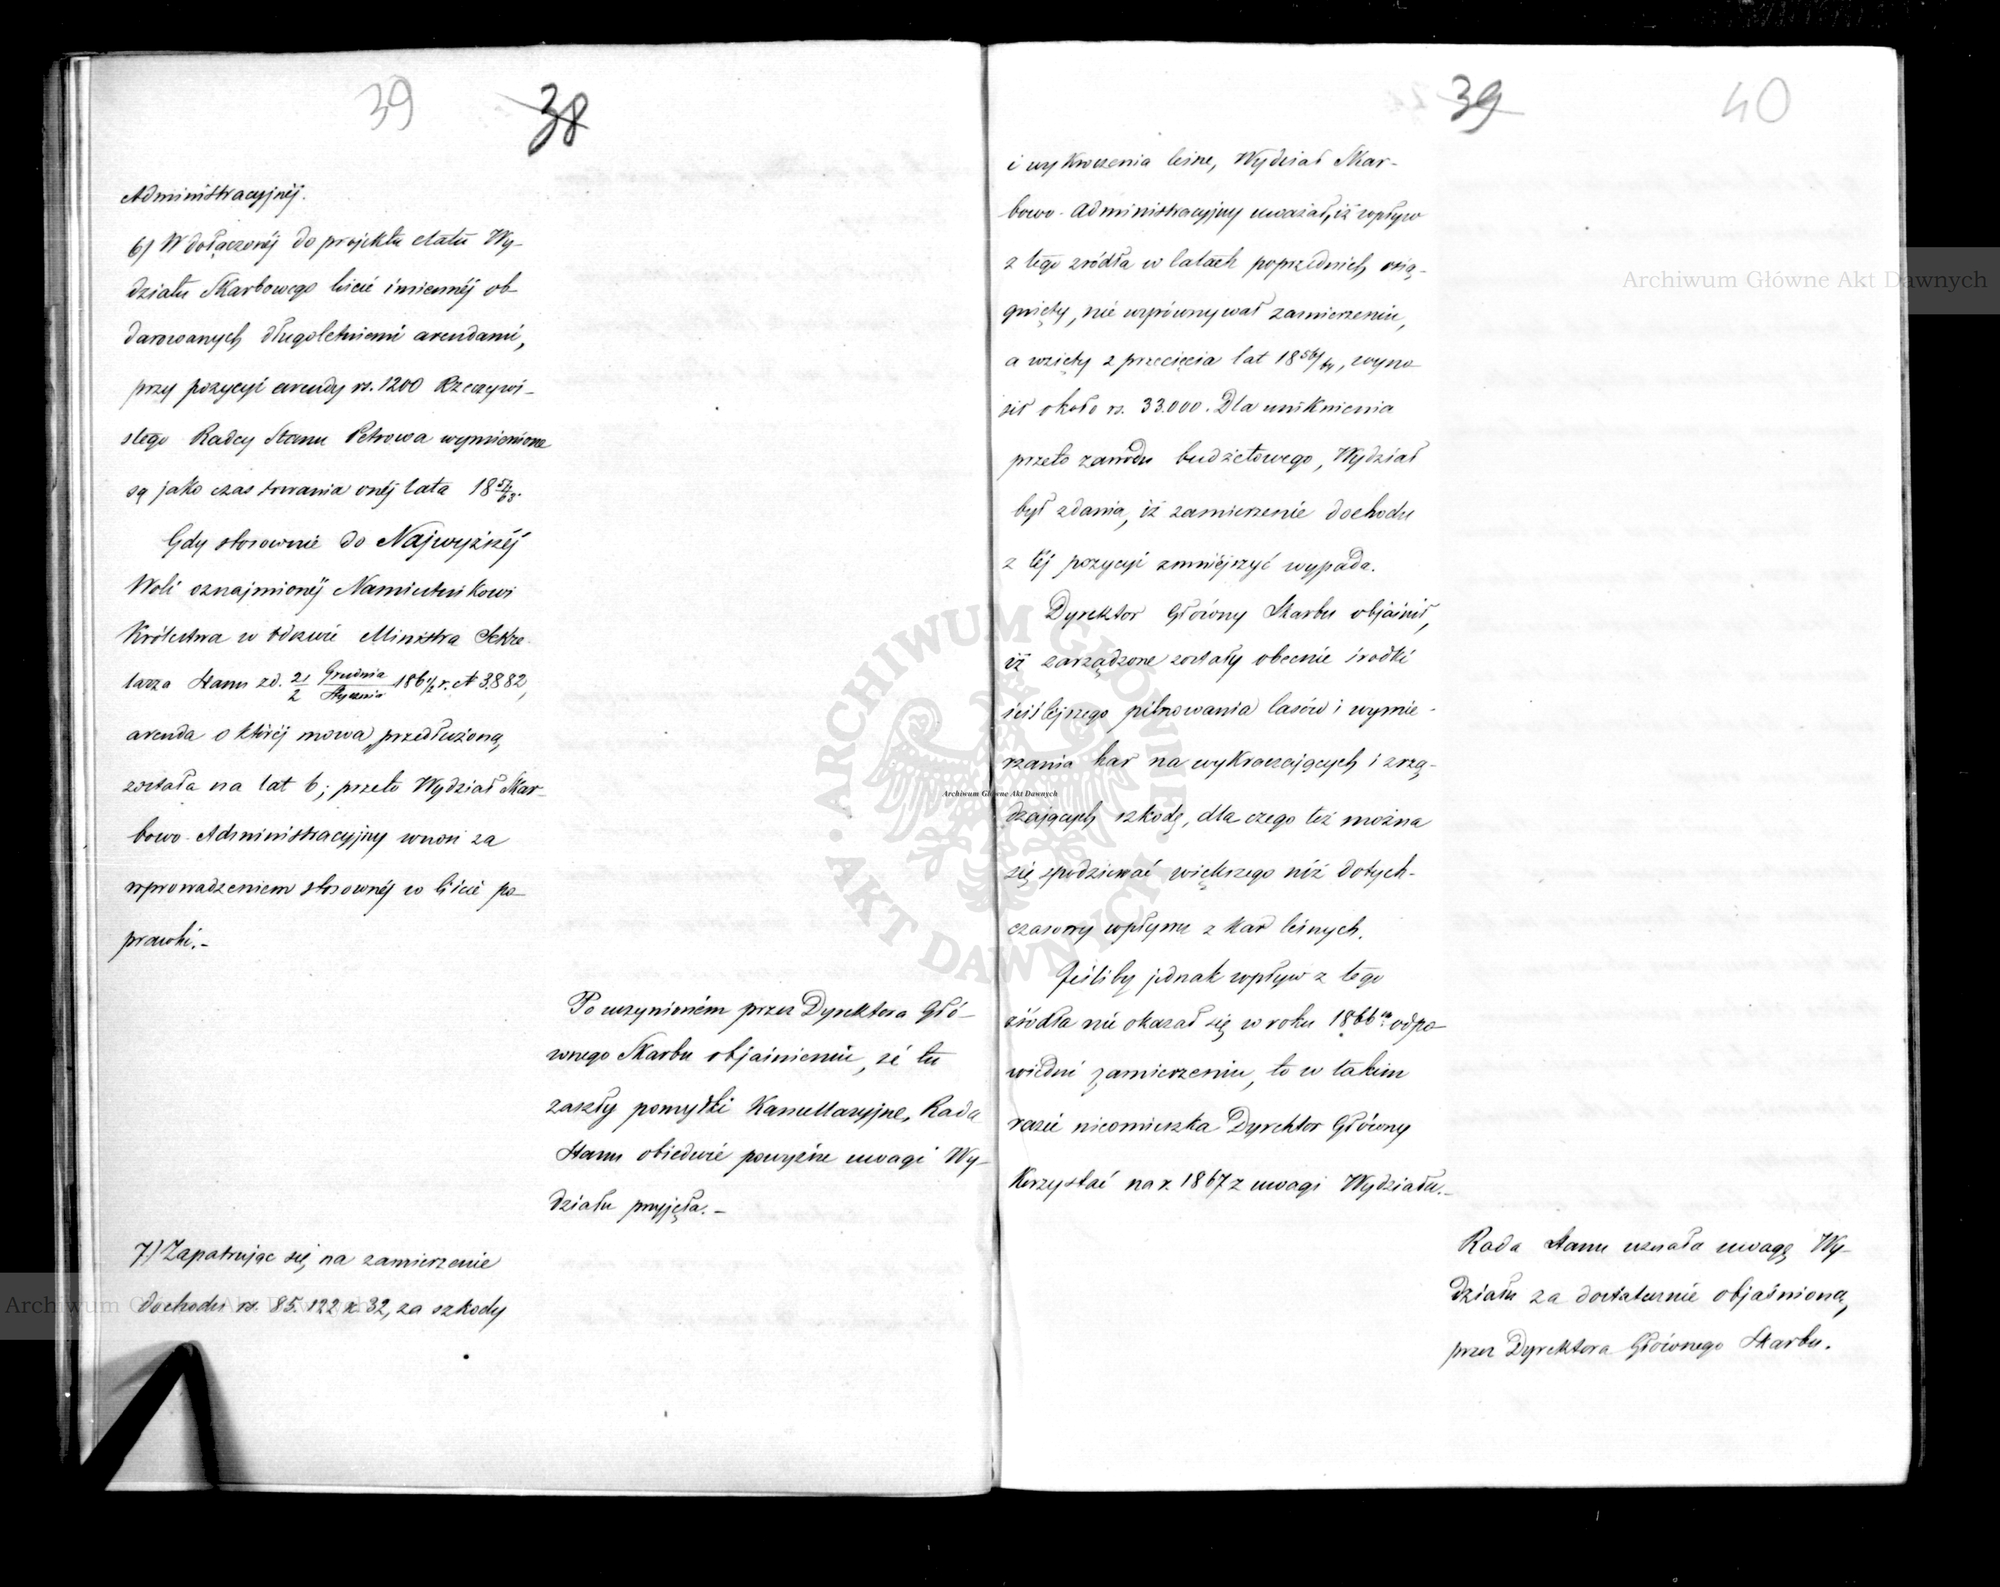 39 38
Administracyjnéj.
6) W dołączonéj do projektu etatu Wy-
działu Skarbowego liście imiennéj ob-
darowanych długoletniemi arendami,
przy pozycyi arendy rs. 1200 Rzeczywi-
stego Radcy Stanu Petrowa wymienione
są jako czas trwania onéj lata 18
Gdy stosownie do Najwyższéj
Woli oznajmionéj Namiestnikowi
Królestwa w odezwie Ministra Sekre-
tarza Stanu z d. 21/2 Grudnia/Stycznia 186½ r. N 3.882,
arenda o któréj mowa przedłużoną
została na lat 6; przeto Wydział Skar-
bowo-Administracyjny wnosi za
wprowadzeniem stosownéj w liście po-
prawki.-
Po uczynioném przez Dyrektora Głó-
wnego Skarbu objaśnieniu, że tu
zaszły pomyłki Kancellaryjne, Rada
Stanu obiedwie powyższe uwagi Wy-
działu przyjęła.-
7) Zapatrując się na zamierzenie
dochodu rs. 85.122 k 32, za szkody
39 40
i wykroczenia leśne, Wydział Skar-
bowo-Administracyjny uważał, iż wpływ
z tego źródła w latach poprzednich osią-
gnięty, nie wyrównywał zamierzeniu,
a wzięty z przecięcia lat 18, wyno-
sił około rs. 33.000. Dla uniknienia
przeto zawodu budżetowego, Wydział
był zdania, iż zamierzenie dochodu
z téj pozycyi zmniéjszyć wypada.
Dyrektor Główny Skarbu objaśnił,
iż zarządzone zostały obecnie środki
ściśléjszego pilnowania lasów i wymie-
rzania kar na wykraczających i zrzą-
dzających szkodę, dla czego też można
się spodziewać większego niż dotych-
czasowy wpływu z kar leśnych.
Jeśliby jednak wpływ z tego
źródła nie okazał się w roku 1866 odpo-
wiedni zamierzeniu, to w takim
razie nieomieszka Dyrektor Główny
Korzystać na r. 1867 z uwagi Wydziału.-
Rada Stanu uznała uwagę Wy-
działu za dostatecznie objaśnioną
przez Dyrektora Głównego Skarbu.
Archiwum Główne Akt Dawnych
ARCHIWUM GŁÓWNE AKT DAWNYCH
Archiwum Główne Akt Dawnych
Archiwum Główne Akt Dawnych